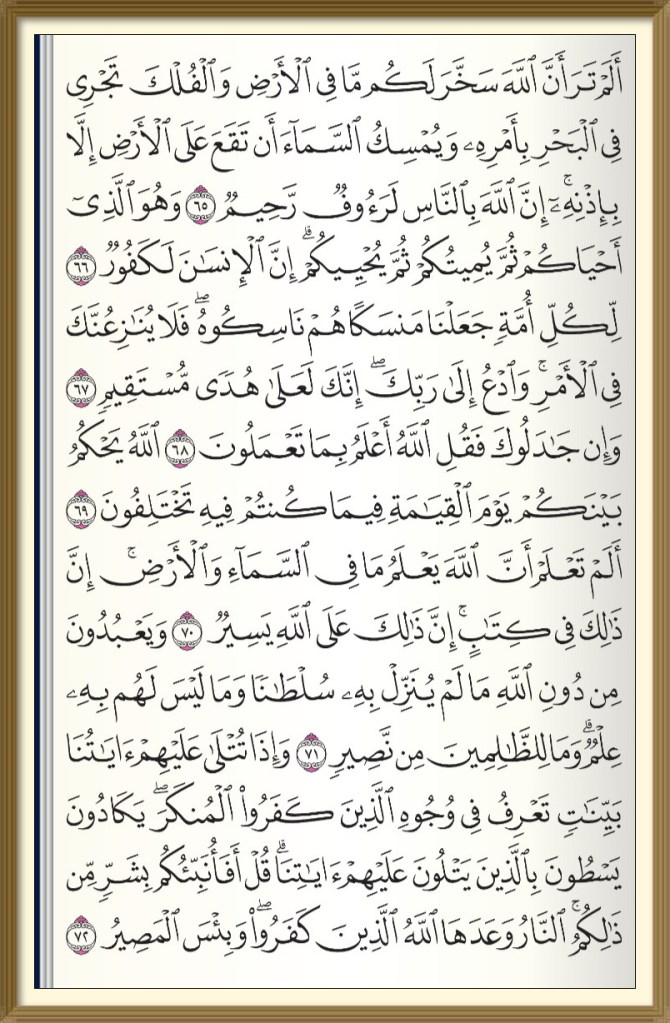 أَلَمْ تَرَ أَنَّ ٱللَّهَ سَخَّرَ لَكُم مَّا فِى ٱلْأَرْضِ وَٱلْفُلْكَ تَجْرِى
فِى ٱلْبَحْرِ بِأَمْرِهِۦ وَيُمْسِكُ ٱلسَّمَآءَ أَن تَقَعَ عَلَى ٱلْأَرْضِ إِلَّا
بِإِذْنِهِۦٓ ۚ إِنَّ ٱللَّهَ بِٱلنَّاسِ لَرَءُوفٌ رَّحِيمٌ ٦٥ وَهُوَ ٱلَّذِىٓ
أَحْيَاكُمْ ثُمَّ يُمِيتُكُمْ ثُمَّ يُحْيِيكُمْ ۗ إِنَّ ٱلْإِنسَٰنَ لَكَفُورٌ ٦٦
لِّكُلِّ أُمَّةٍ جَعَلْنَا مَنسَكًا هُمْ نَاسِكُوهُ ۖ فَلَا يُنَٰزِعُنَّكَ
فِى ٱلْأَمْرِ ۚ وَٱدْعُ إِلَىٰ رَبِّكَ ۖ إِنَّكَ لَعَلَىٰ هُدًى مُّسْتَقِيمٍ ٦٧
وَإِن جَٰدَلُوكَ فَقُلِ ٱللَّهُ أَعْلَمُ بِمَا تَعْمَلُونَ ٦٨ ٱللَّهُ يَحْكُمُ
بَيْنَكُمْ يَوْمَ ٱلْقِيَٰمَةِ فِيمَا كُنتُمْ فِيهِ تَخْتَلِفُونَ ٦٩
أَلَمْ تَعْلَمْ أَنَّ ٱللَّهَ يَعْلَمُ مَا فِى ٱلسَّمَآءِ وَٱلْأَرْضِ ۗ إِنَّ
ذَٰلِكَ فِى كِتَٰبٍ ۚ إِنَّ ذَٰلِكَ عَلَى ٱللَّهِ يَسِيرٌ ٧٠ وَيَعْبُدُونَ
مِن دُونِ ٱللَّهِ مَا لَمْ يُنَزِّلْ بِهِۦ سُلْطَٰنًا وَمَا لَيْسَ لَهُم بِهِۦ
عِلْمٌ ۗ وَمَا لِلظَّٰلِمِينَ مِن نَّصِيرٍ ٧١ وَإِذَا تُتْلَىٰ عَلَيْهِمْ ءَايَٰتُنَا
بَيِّنَٰتٍ تَعْرِفُ فِى وُجُوهِ ٱلَّذِينَ كَفَرُوا۟ ٱلْمُنكَرَ ۖ يَكَادُونَ
يَسْطُونَ بِٱلَّذِينَ يَتْلُونَ عَلَيْهِمْ ءَايَٰتِنَا ۗ قُلْ أَفَأُنَبِّئُكُم بِشَرٍّ مِّن
ذَٰلِكُمُ ۚ ٱلنَّارُ وَعَدَهَا ٱللَّهُ ٱلَّذِينَ كَفَرُوا۟ ۖ وَبِئْسَ ٱلْمَصِيرُ ٧٢